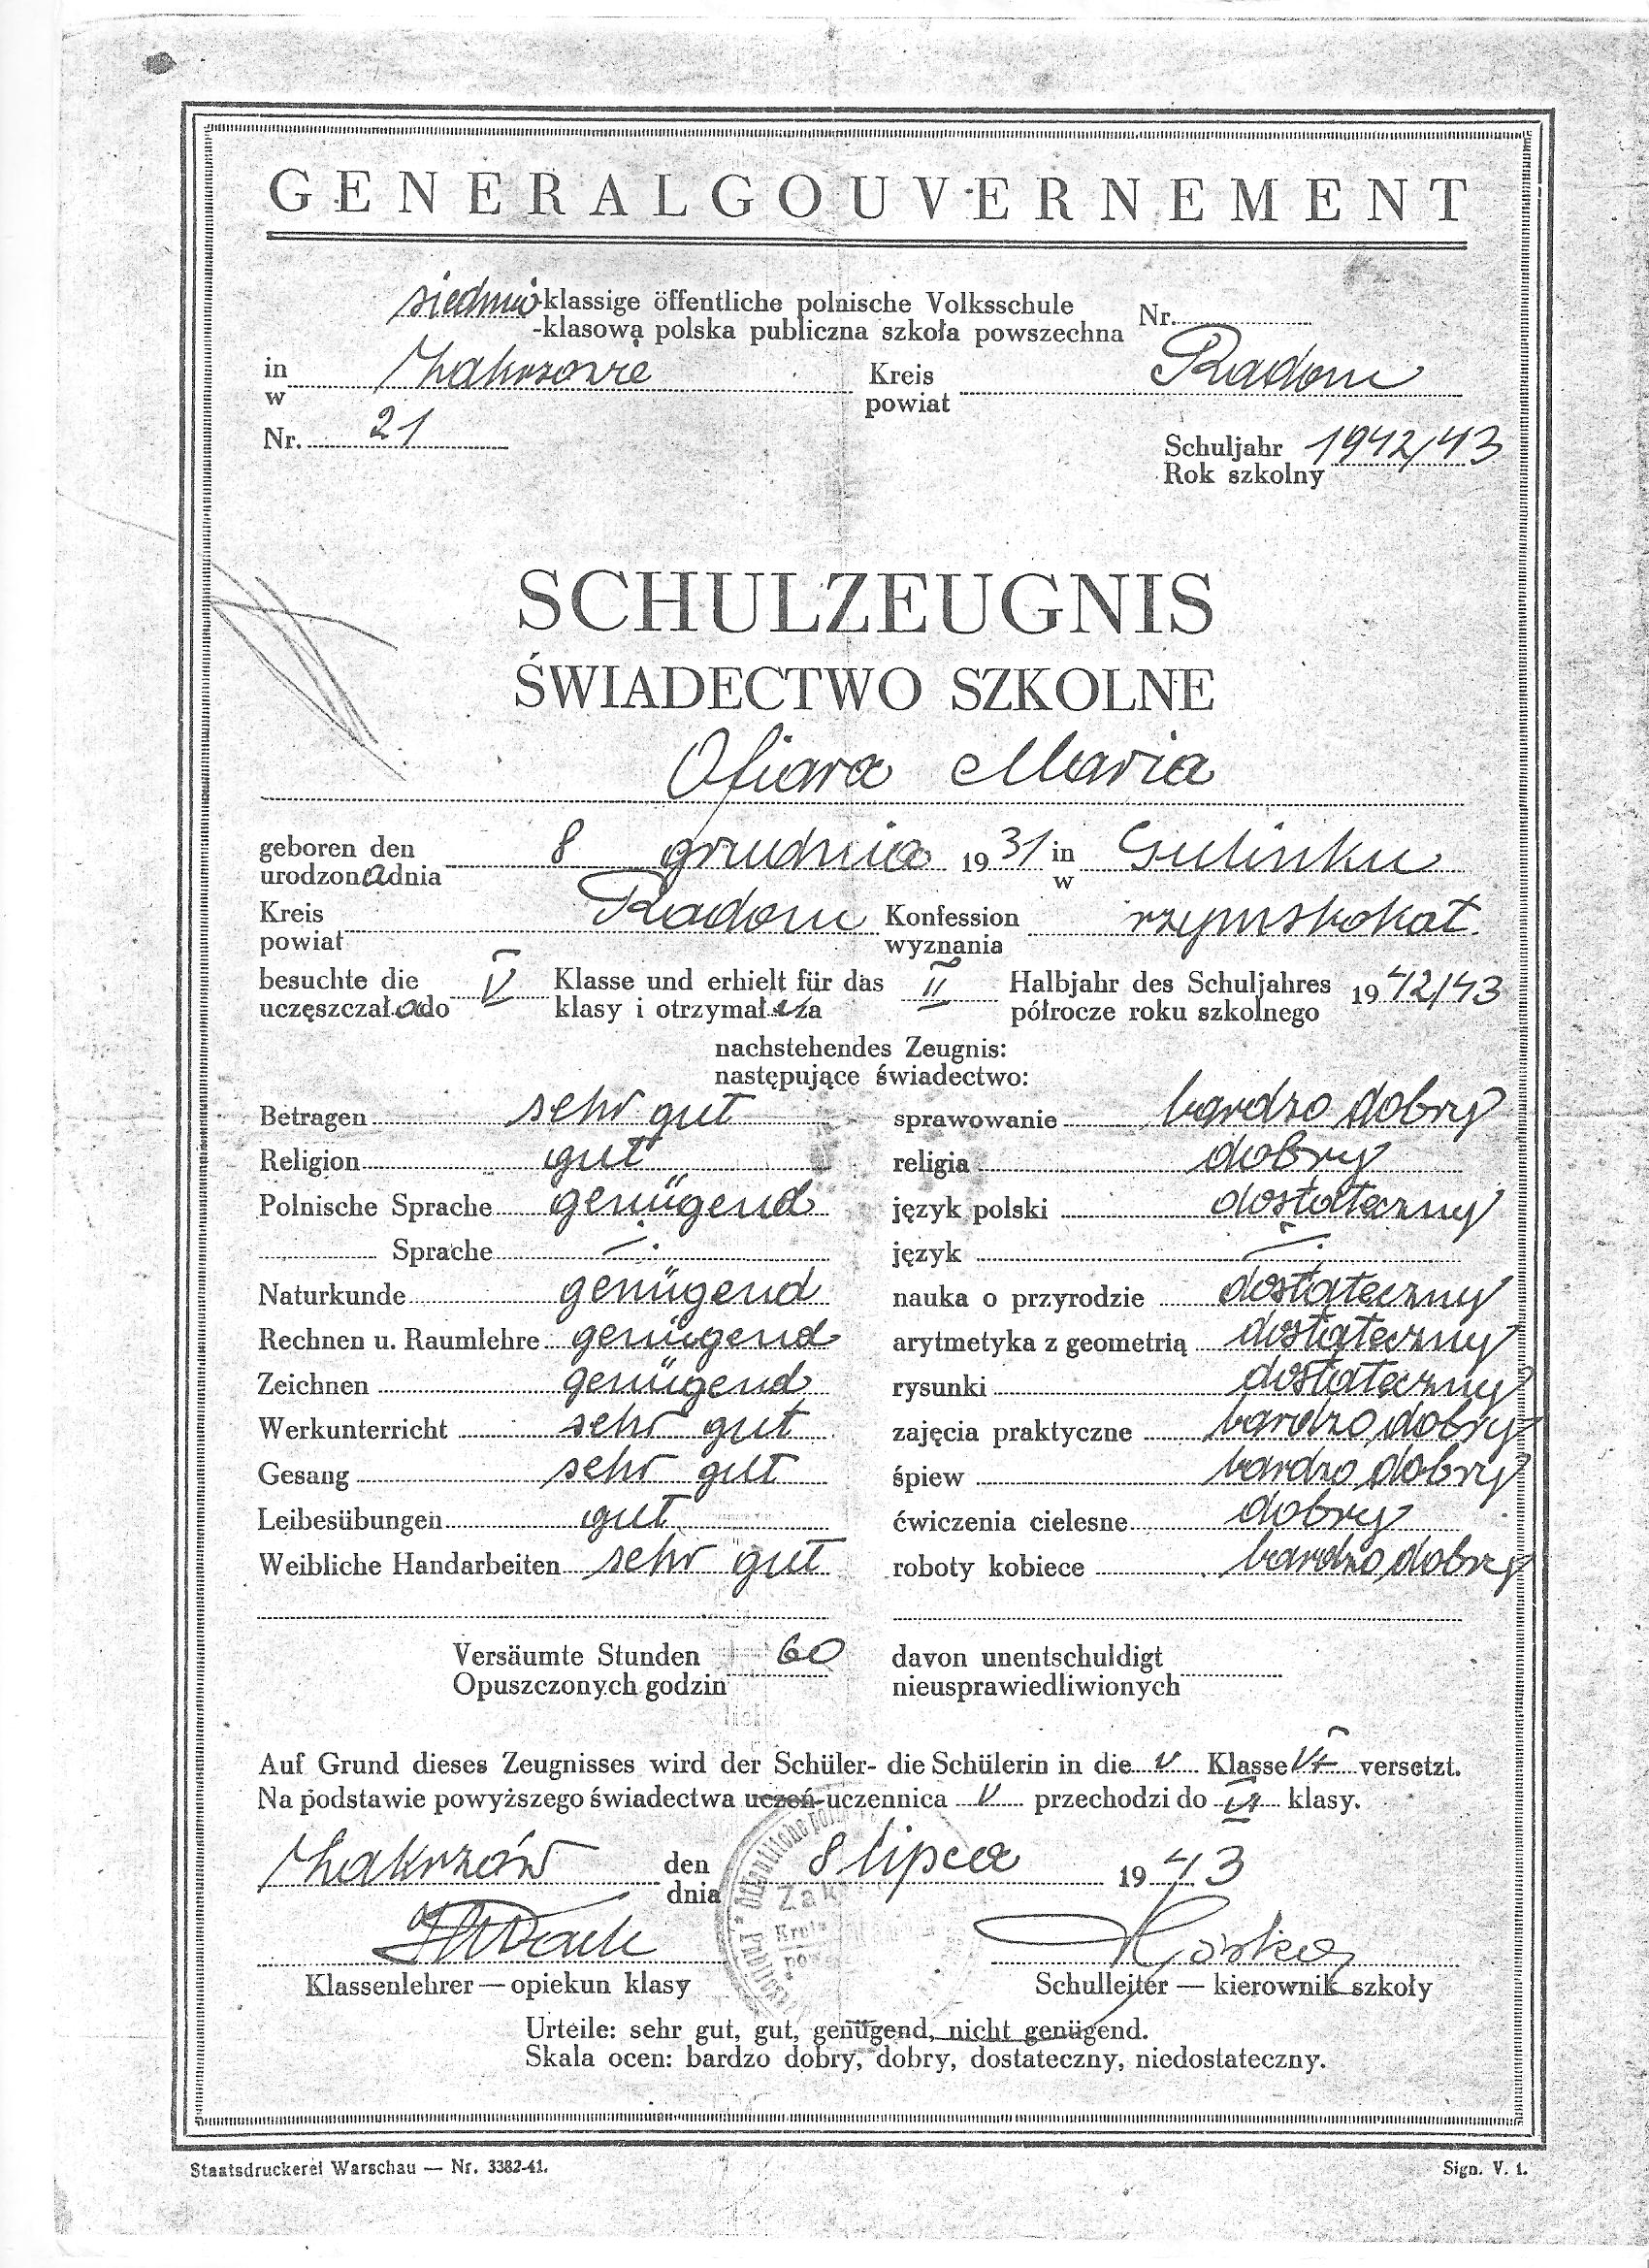 GENERALGOUVERNEMENT
siedmio-klassige öffentliche polnische Volksschule Nr.
-klasową polska publiczna szkoła powszechna
in Zakrzowie Kreis Radom
w powiat
Nr. 21
Schuljahr 1942/43
Rok szkolny
SCHULZEUGNIS
ŚWIADECTWO SZKOLNE
Ofiara Maria
geboren den 8 grudnia 1931 in Gulinku
urodzona dnia w
Kreis Radom Konfession rzymskokat.
powiat wyznania
besuchte die V Klasse und erhielt für das II Halbjahr des Schuljahres 1942/43
uczęszczał.a do klasy i otrzymał.a za półrocze roku szkolnego
nachstehendes Zeugnis:
następujące świadectwo:
Betragen sehr gut sprawowanie bardzo dobry
Religion gut religia dobry
Polnische Sprache genügend język polski dostateczny
Sprache —. język —.
Naturkunde genügend nauka o przyrodzie dostateczny
Rechnen u. Raumlehre genügend arytmetyka z geometrią dostateczny
Zeichnen genügend rysunki dostateczny
Werkunterricht sehr gut zajęcia praktyczne bardzo dobry
Gesang sehr gut śpiew bardzo dobry
Leibesübungen gut ćwiczenia cielesne dobry
Weibliche Handarbeiten sehr gut roboty kobiece bardzo dobry
Versäumte Stunden 60 davon unentschuldigt
Opuszczonych godzin nieusprawiedliwionych
Auf Grund dieses Zeugnisses wird der Schüler- die Schülerin in die V Klasse VI versetzt.
Na podstawie powyższego świadectwa uczeń-uczennica V przechodzi do VI klasy.
Zakrzów den 8 lipca 1943
dnia
Klassenlehrer — opiekun klasy Schulleiter — kierownik szkoły
Urteile: sehr gut, gut, genügend, nicht genügend.
Skala ocen: bardzo dobry, dobry, dostateczny, niedostateczny.
Staatsdruckerei Warschau — Nr. 3382-41. Sign. V. 1.